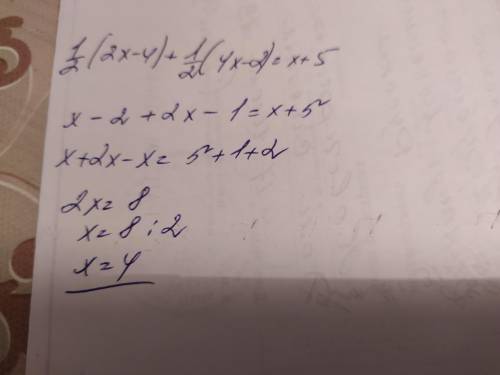 1/2(2x-4)+1/2(4x-2)=x+5
x-2+2x-1=x+5
x+2x-x=5+1+2
2x=8
x=8:2
x=4